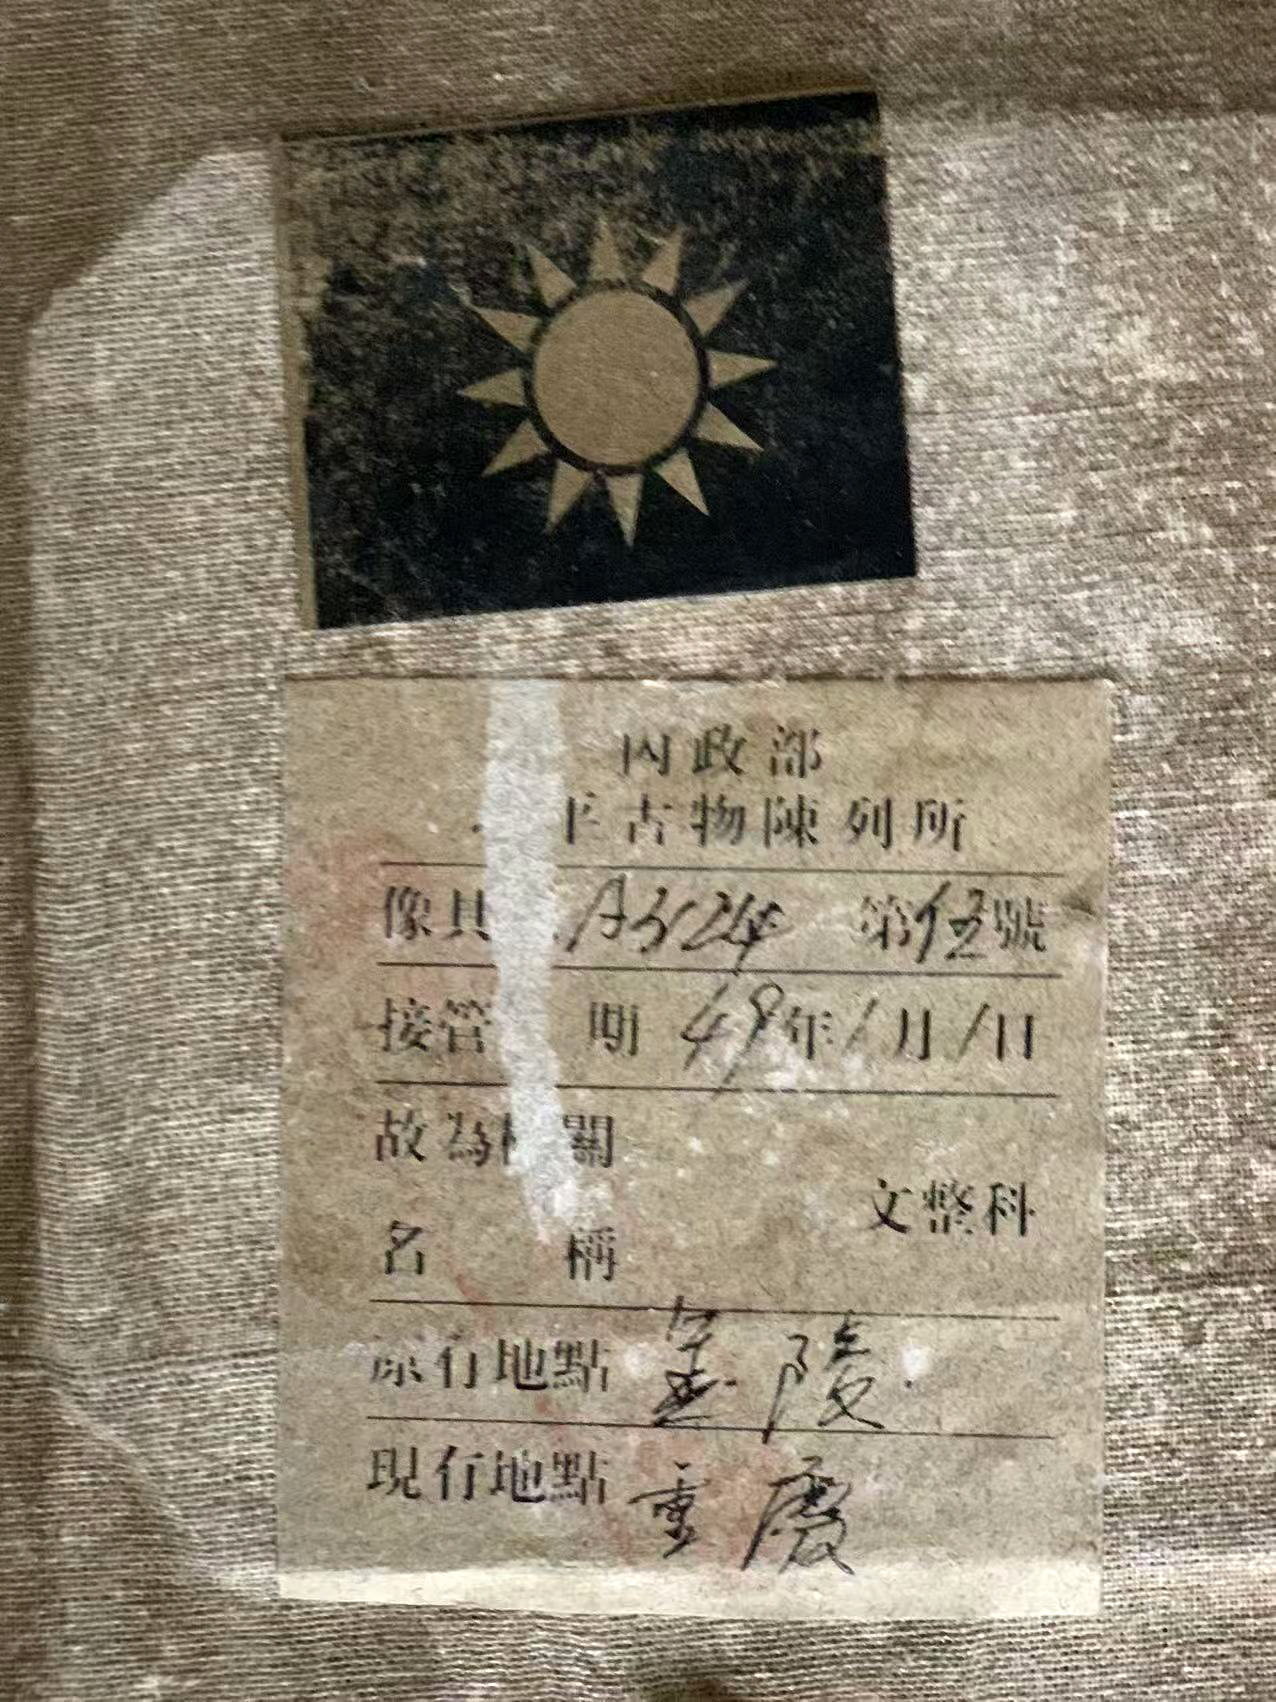 内政部
平古物陳列所
像具 A324 第伍號
接管 期 49年1月1日
故為機關
文整科
名 稱
原有地點 金陵
現有地點 重慶